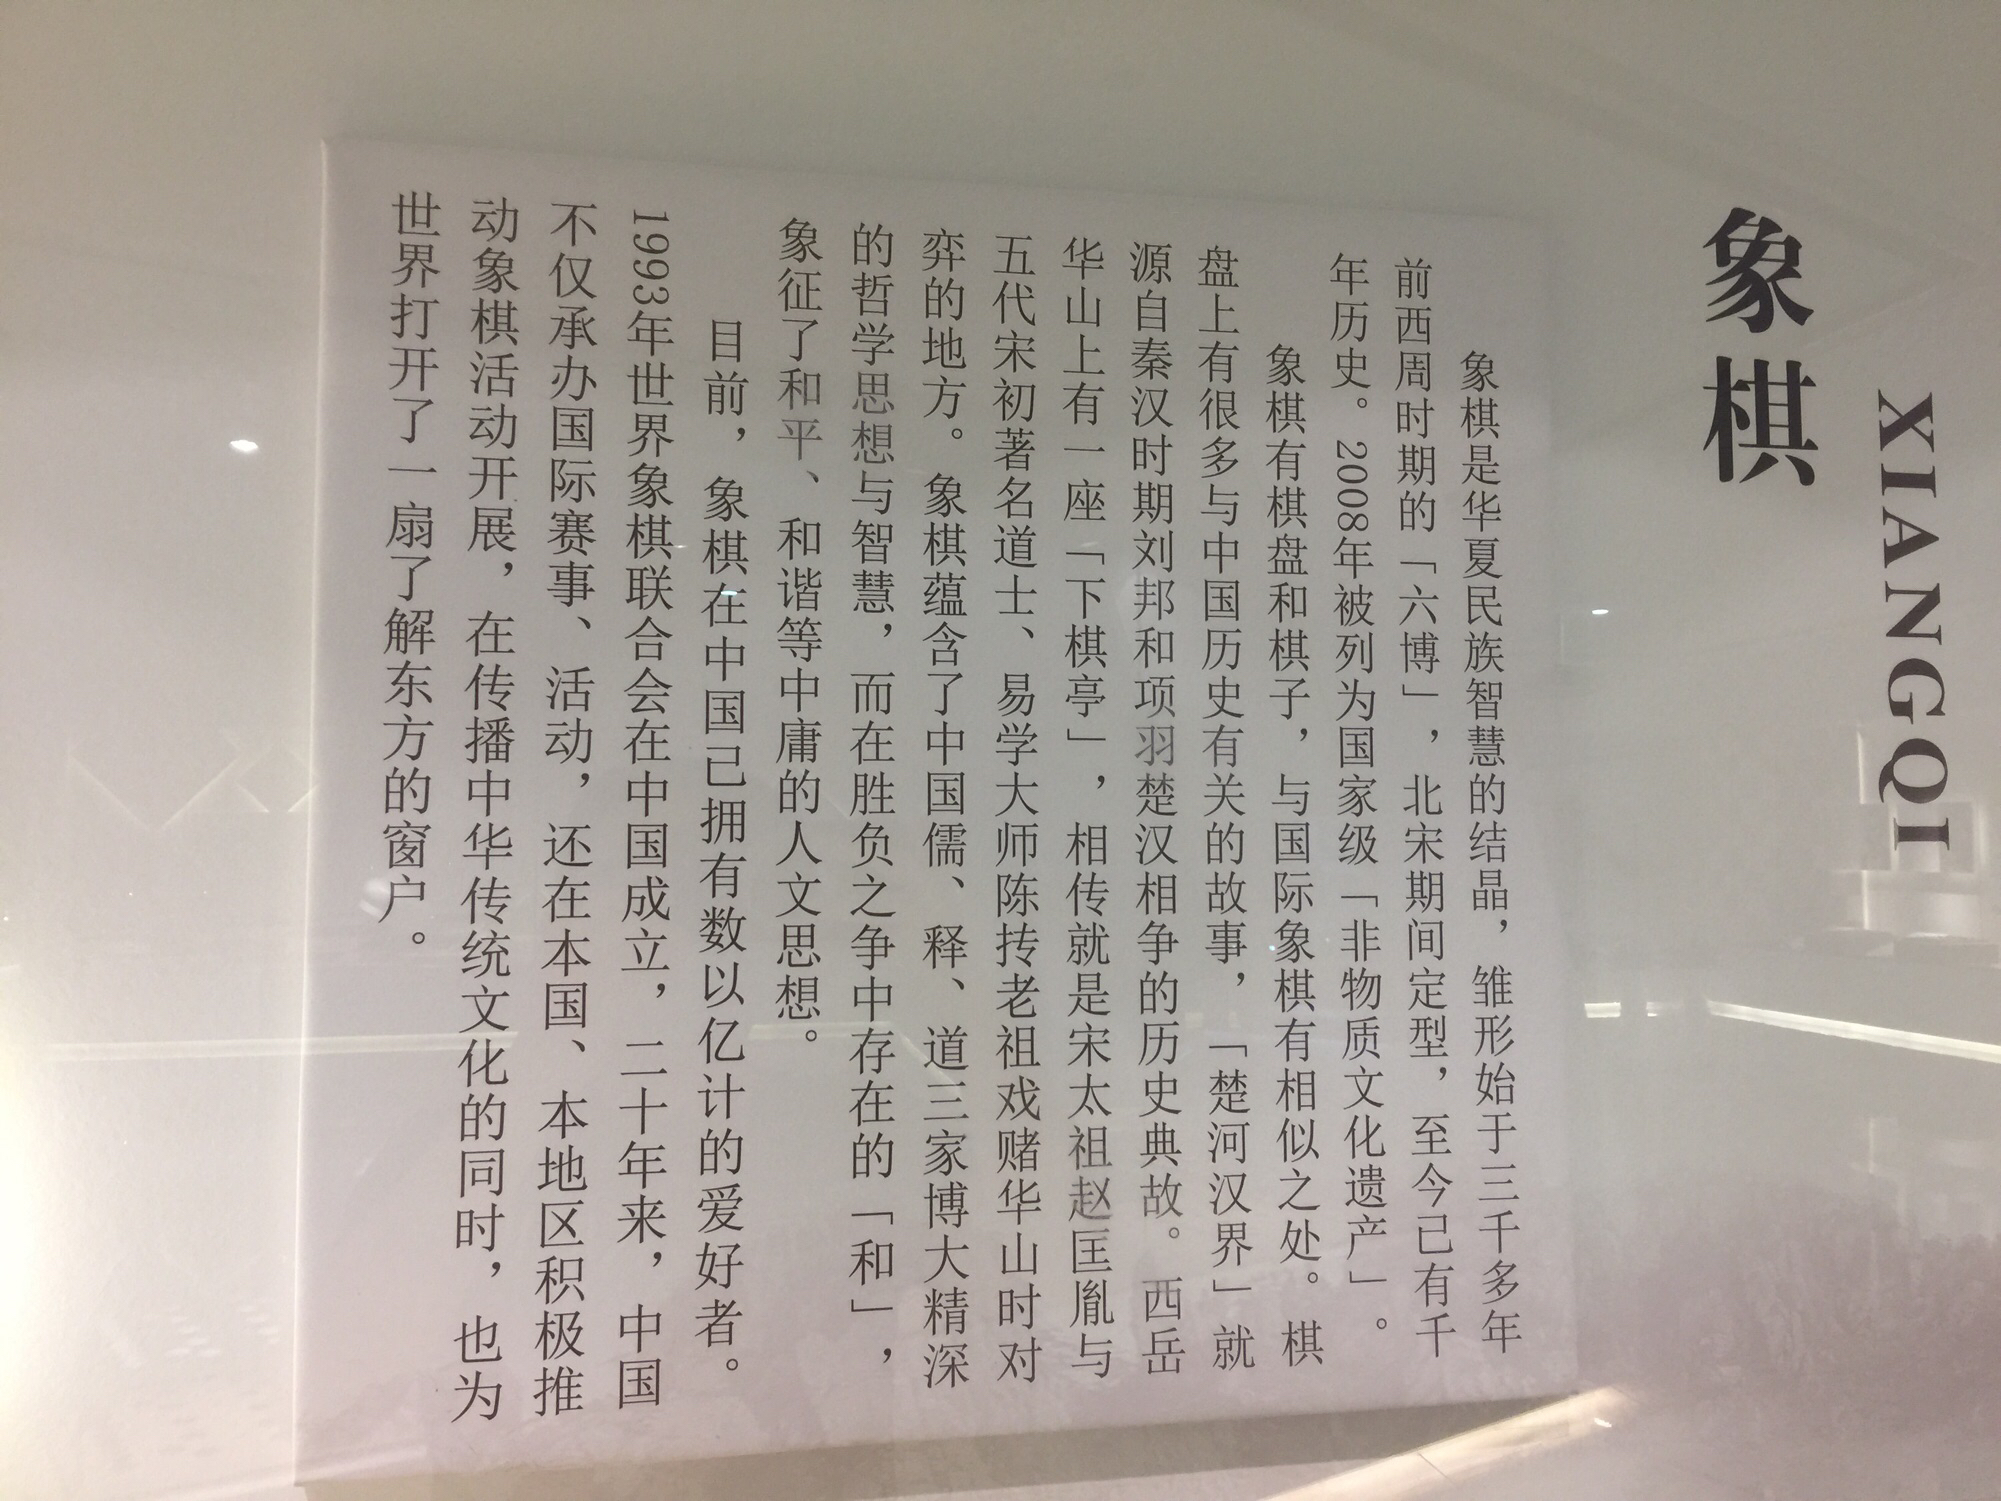 象棋
XIANGQI
象棋是华夏民族智慧的结晶，雏形始于三千多年
前西周时期的「六博」，北宋期间定型，至今已有千
年历史。2008年被列为国家级「非物质文化遗产」。
象棋有棋盘和棋子，与国际象棋有相似之处。棋
盘上有很多与中国历史有关的故事，「楚河汉界」就
源自秦汉时期刘邦和项羽楚汉相争的历史典故。西岳
华山上有一座「下棋亭」，相传就是宋太祖赵匡胤与
五代宋初著名道士、易学大师陈抟老祖戏赌华山时对
弈的地方。象棋蕴含了中国儒、释、道三家博大精深
的哲学思想与智慧，而在胜负之争中存在的「和」，
象征了和平、和谐等中庸的人文思想。
目前，象棋在中国已拥有数以亿计的爱好者。
1993年世界象棋联合会在中国成立，二十年来，中国
不仅承办国际赛事、活动，还在本国、本地区积极推
动象棋活动开展，在传播中华传统文化的同时，也为
世界打开了一扇了解东方的窗户。